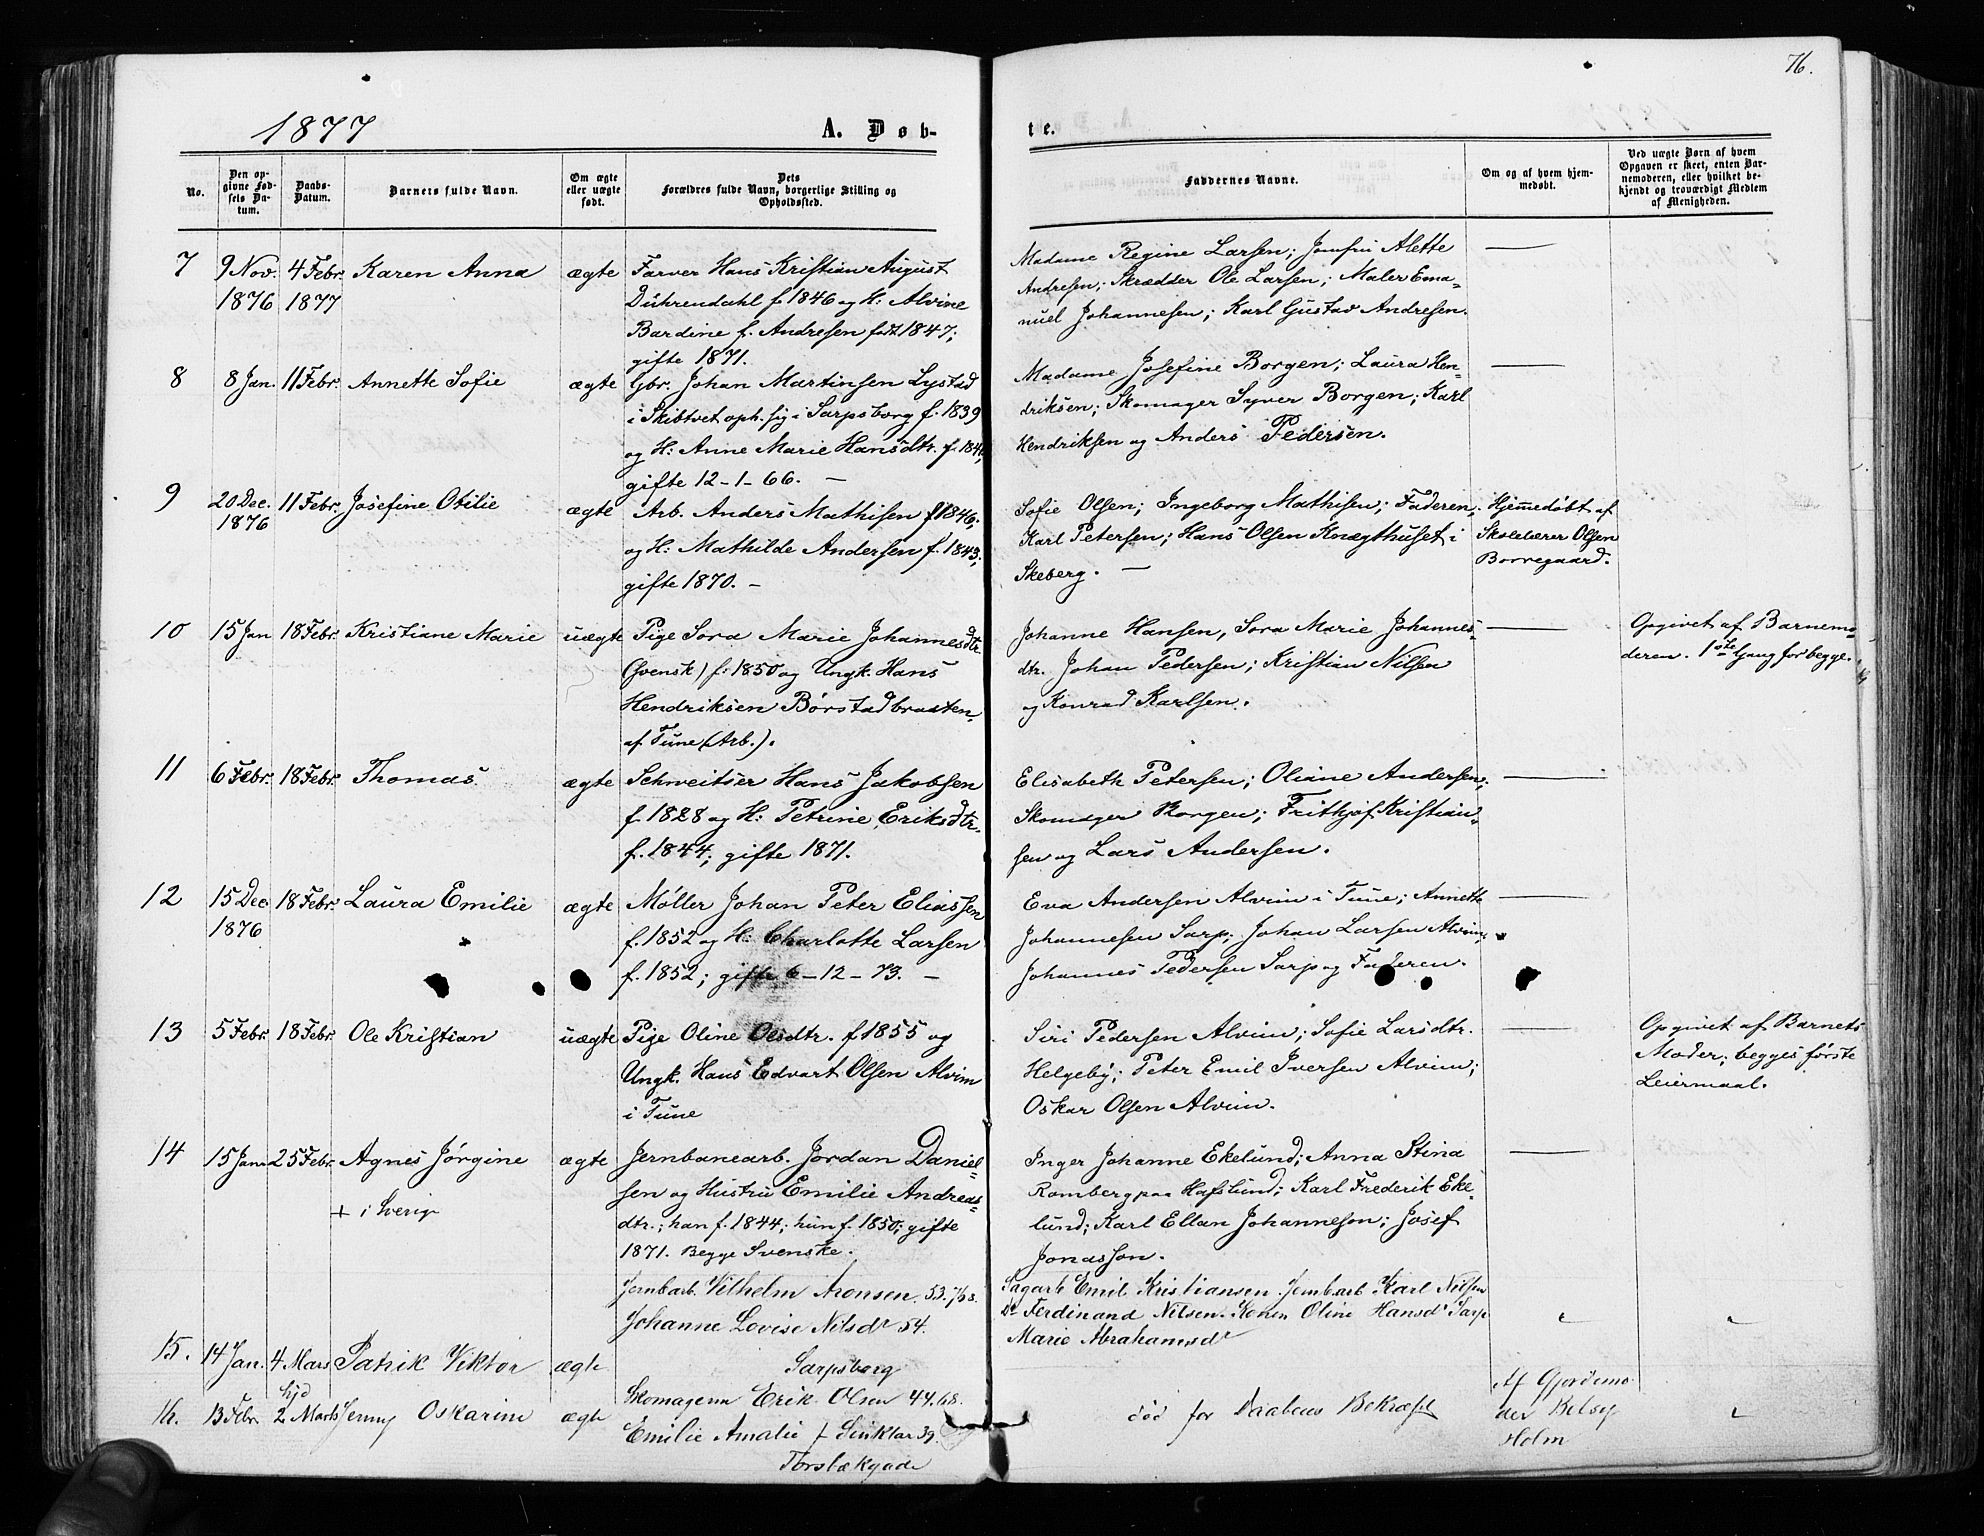 76.
1877 A. Døb- te.
No. Den opgivne Fødsels Datum. Daabs-Datum. Barnets fulde Navn. Om ægte eller uægte født. Dets Forældres fulde Navn, borgerlige Stilling og Opholdssted. Faddernes Navne. Om og af hvem hjemmedøbt. Ved uægte Børn af hvem Opgaven er skeet, enten Barnemoderen, eller hvilket bekjendt og troværdigt Medlem af Menigheden.
7 9 Nov. 4 Febr. Karen Anna ægte Farver Hans Kristian August
1876 1877 Dührendahl f. 1846 og H: Alvine
Bardine f. Andresen født 1847;
gifte 1871.
Madame Regine Larsen; Jomfru Alette
Andresen; Skrædder Ole Larsen; Maler Ema-
nuel Johannesen; Karl Gustav Andresen.
8 8 Jan. 11 Febr. Annette Sofie ægte Gbr. Johan Martinsen Lystad
i Skibtvet oph. sig i Sarpsborg f. 1839
og H: Anne Marie Hansdtr. f.
gifte 12-1-66. —
Madame Josefine Borgen; Laura Hen-
driksen; Skomager Syver Borgen; Karl
Hendriksen og Anders Pedersen.
9 20 Dec. 11 Febr. Josefine Otilie ægte Arb. Anders Mathisen f. 1846;
1876 og H: Mathilde Andersen f. 1843;
gifte 1870. —
Sofie Olsen; Ingeborg Mathisen; Faderen; Hjemmedøbt af
Karl Petersen; Hans Olsen Knægthuset i Skolelærer Olsen
Skeberg. — Borregaard.
10 15 Jan 18 Febr. Kristiane Marie uægte Pige Sora Marie Johannesdtr
(Svensk) f. 1850 og Ungk. Hans
Hendriksen Børstadbraaten
af Tune (Arb.).
Johanne Hansen, Sora Marie Johannes- Opgivet af Barnemo-
dtr. Johan Pedersen; Kristian Nilsen deren. 1ste Gang for begge.
og Konrad Karlsen.
11 6 Febr. 18 Febr. Thomas ægte Schweitser Hans Jakobsen
f. 1828 og H: Petrine Eriksdtr.
f. 1844; gifte 1871.
Elisabeth Petersen; Oliane Andersen;
Skomager Borgen; Frithjof Kristian-
sen og Lars Andersen.
12 15 Dec. 18 Febr. Laura Emilie ægte Møller Johan Peter Eliassen
1876 f. 1852 og H: Charlotte Larsen
f. 1852; gifte 6-12-73. —
Eva Andersen Alvim i Tune; Annette
Johannesen Sarp; Johan Larsen Alvim;
Johannes Pedersen Sarp og Faderen.
13 5 Febr. 18 Febr. Ole Kristian uægte Pige Oline Olsdtr. f 1855 og
Ungk. Hans Edvart Olsen Alvim
i Tune
Siri Pedersen Alvim; Sofie Larsdtr. Opgivet af Barnets
Helgeby; Peter Emil Iversen Alvim; Moder; begges første
Oskar Olsen Alvim. Leiermaal.
14 15 Jan. 25 Febr. Agnes Jørgine ægte Jernbanearb. Jordan Daniel-
+ i Sverig sen og Hustru Emilie Andreas-
dtr.; han f. 1844; hun f. 1850; gifte
1871. Begge Svenske.
Inger Johanne Ekelund; Anna Stina
Romberg paa Hafslund; Karl Frederik Eke-
lund; Karl Ellan Johanneson; Josef
Jonasson.
Jernbarb. Vilhelm Aronsen 53.
Johanne Lovise Nilsdr 54.
15. 14 Jan. 4 Mars Patrik Viktor ægte Sarpsborg
Sagarb Emil Kristiansen. Jernbarb Karl Nilsen
Do Ferdinand Nilsen. Konen Oline Hansdr Sarp
Marie Abrahamsdr
16. 13 Febr. hjd 2 Marts Jenny Oskarine ægte Skomagerm Erik Olsen 44.68.
Emilie Amalie f Sinklar 39.
Torsbækgade
død for Daabens Bekræft Af Gjordemo-
der Betsy
Holm